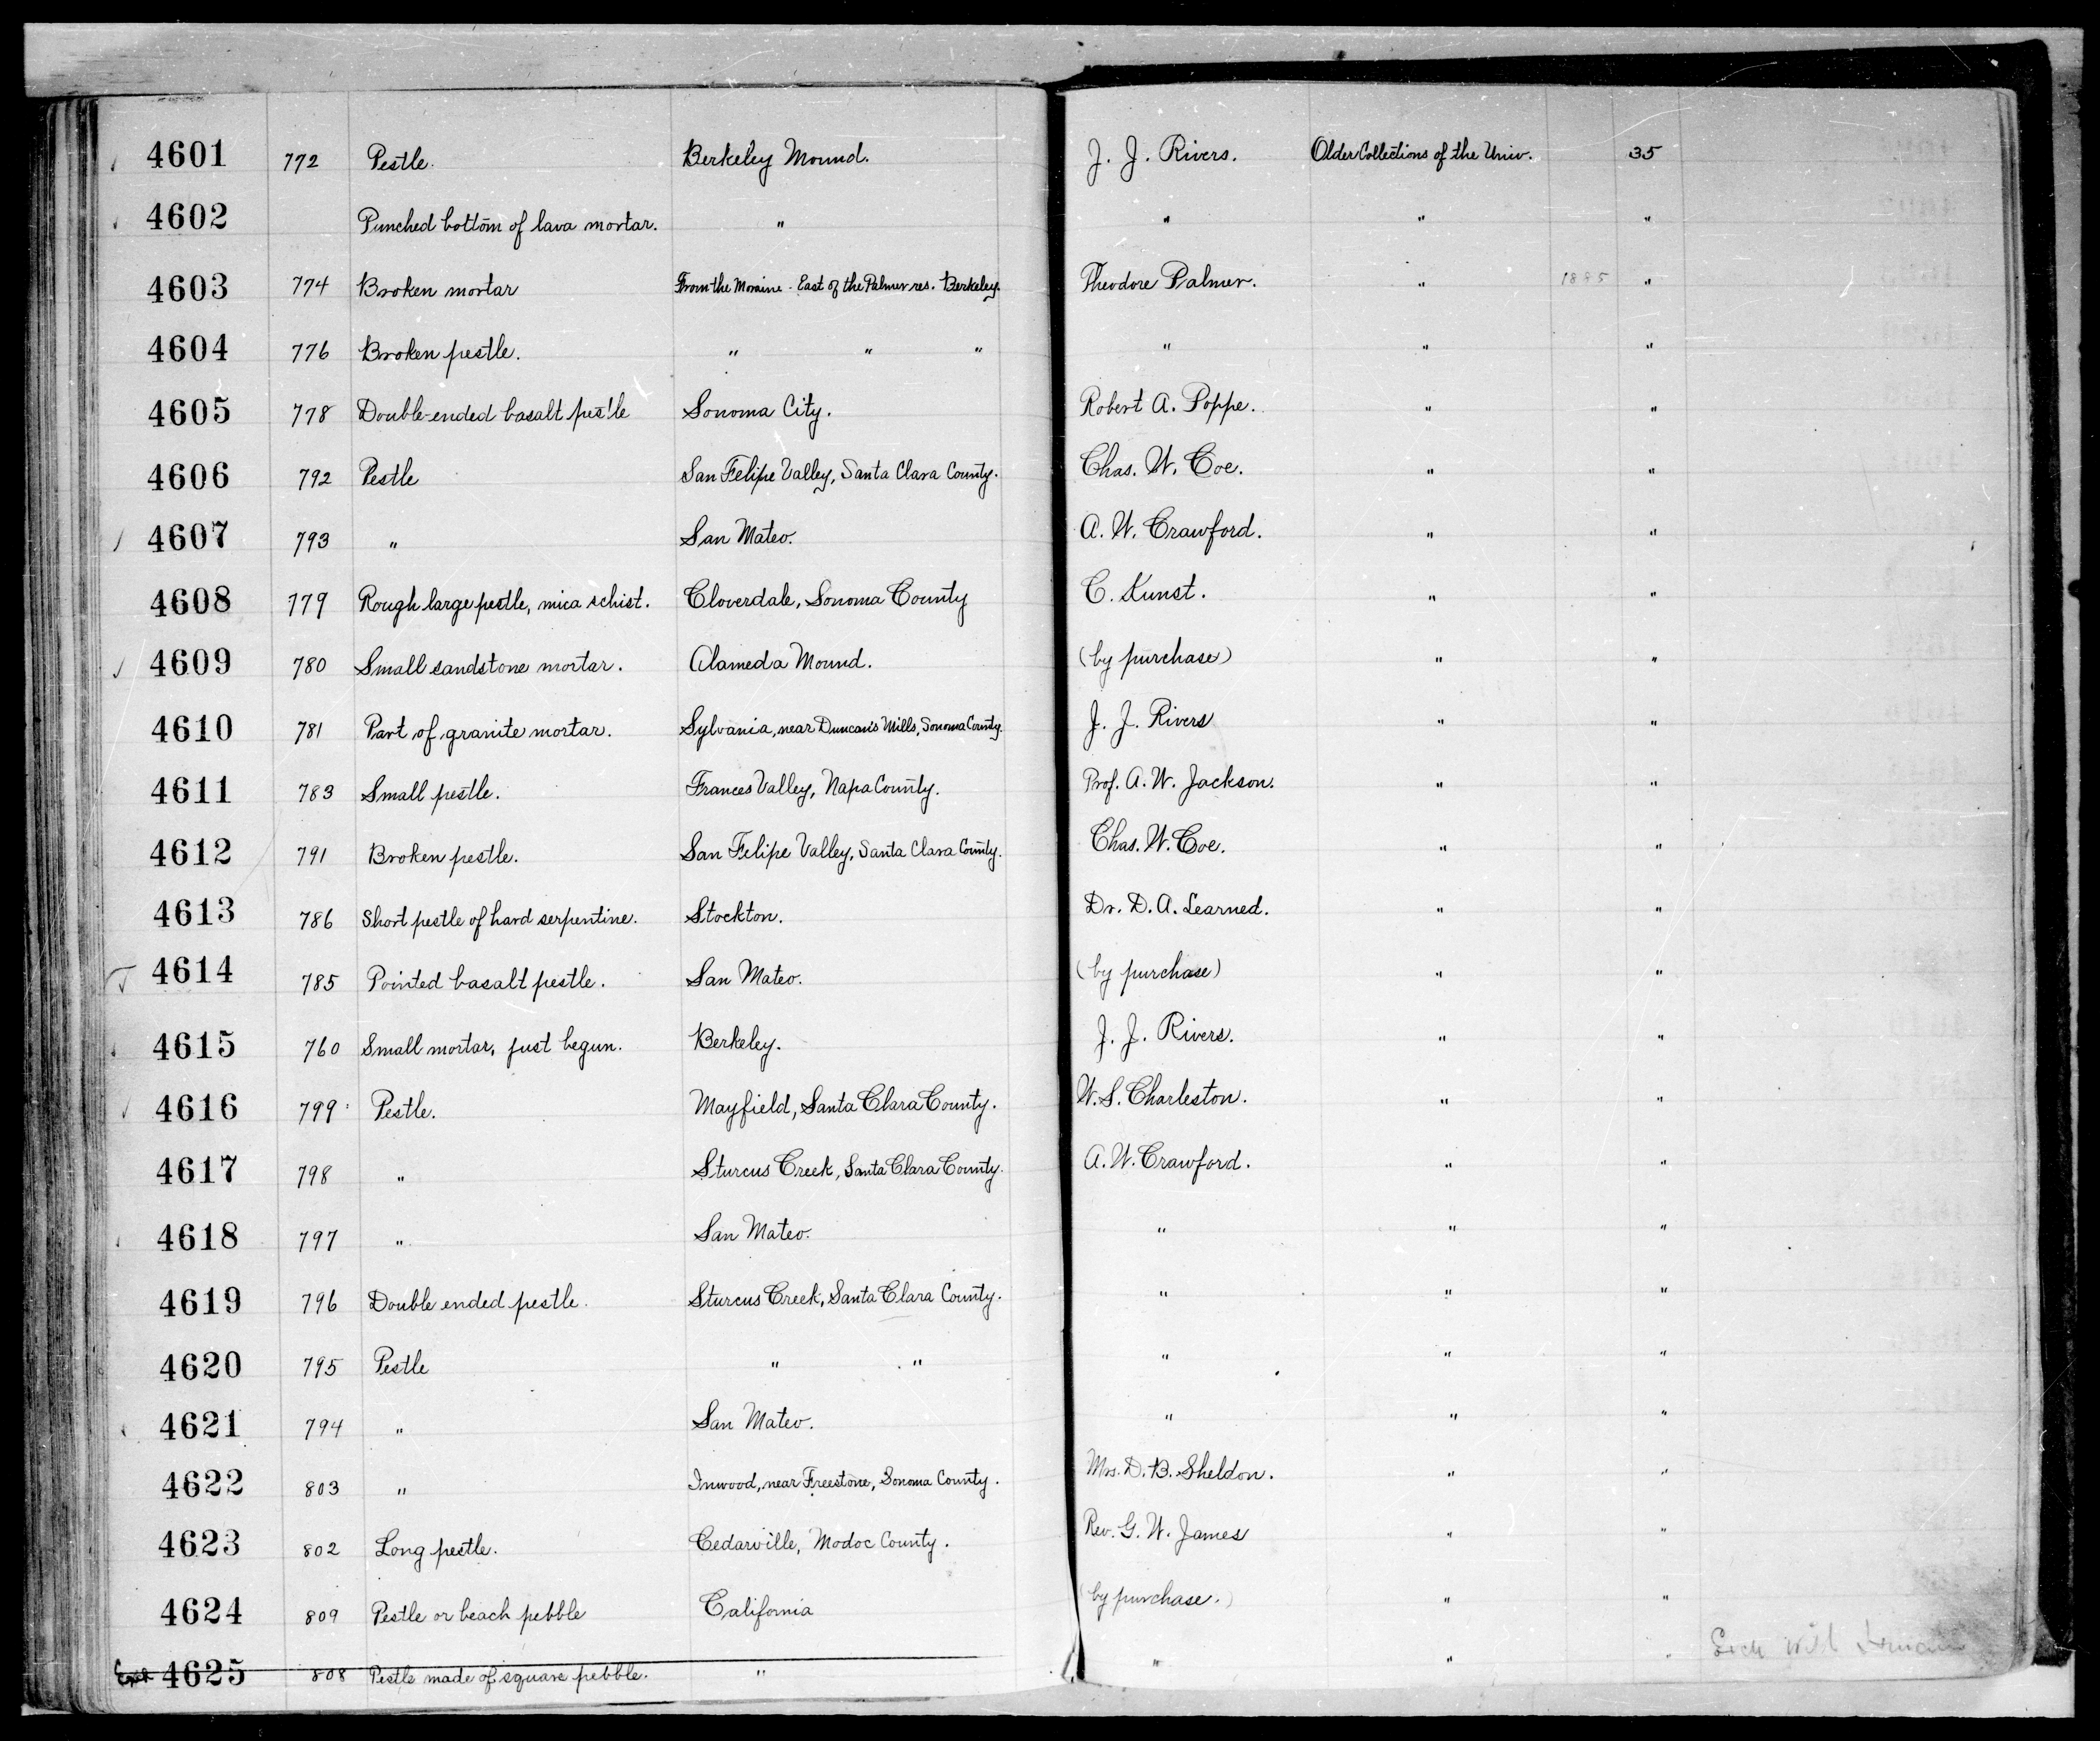 4601 772 Pestle. Berkeley Mound. J. J. Rivers. Older Collections of the Univ. 35
4602 Punched bottom of lava mortar. " " " "
4603 774 Broken mortar From the Moraine - East of the Palmer res. Berkeley. Theodore Palmer. " 1885 "
4604 776 Broken pestle. " " " " " "
4605 778 Double-ended basalt pestle Sonoma City. Robert A. Poppe. " "
4606 792 Pestle San Felipe Valley, Santa Clara County. Chas. W. Coe. " "
4607 793 " San Mateo. A. W. Crawford. " "
4608 779 Rough large pestle, mica schist. Cloverdale, Sonoma County C. Kunst. " "
4609 780 Small sandstone mortar. Alameda Mound. (by purchase) " "
4610 781 Part of granite mortar. Sylvania, near Duncan's Mills, Sonoma County. J. J. Rivers " "
4611 783 Small pestle. Frances Valley, Napa County. Prof. A. W. Jackson. " "
4612 791 Broken pestle. San Felipe Valley, Santa Clara County. Chas. W. Coe. " "
4613 786 Short pestle of hard serpentine. Stockton. Dr. D. A. Learned. " "
4614 785 Pointed basalt pestle. San Mateo. (by purchase) " "
4615 760 Small mortar, just begun. Berkeley. J. J. Rivers. " "
4616 799 Pestle. Mayfield, Santa Clara County. W. S. Charleston. " "
4617 798 " Sturcus Creek, Santa Clara County. A. W. Crawford. " "
4618 797 " San Mateo. " " "
4619 796 Double ended pestle. Sturcus Creek, Santa Clara County. " " "
4620 795 Pestle " " " " "
4621 794 " San Mateo. " " "
4622 803 " Inwood, near Freestone, Sonoma County. Mrs. D. B. Sheldon. " "
4623 802 Long pestle. Cedarville, Modoc County. Rev. G. W. James " "
4624 809 Pestle or beach pebble California (by purchase.) " "
4625 808 Pestle made of square pebble. " " " "